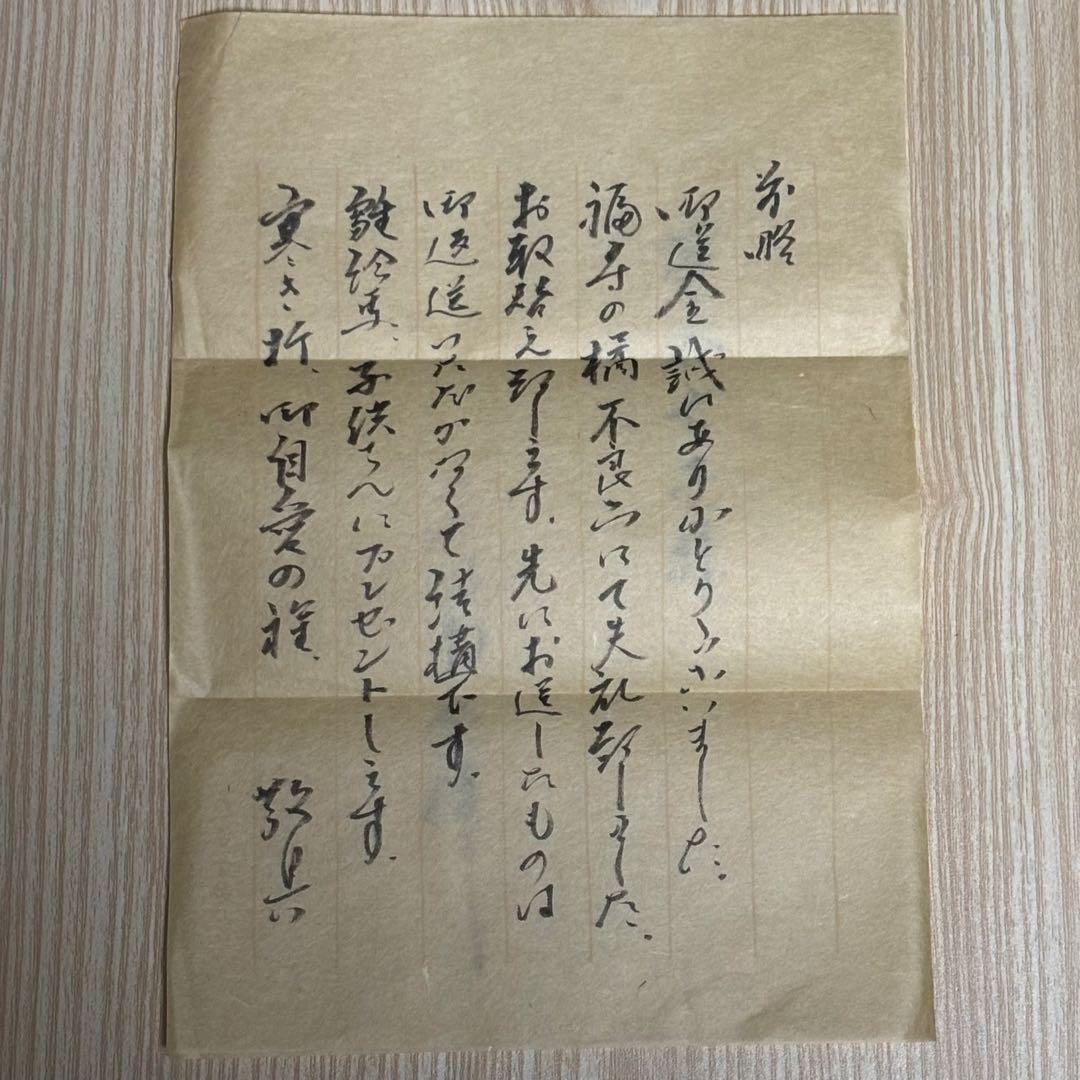 前略
御送金誠にありがとうございました。
福寿の橘不良品にて失礼致しました。
お取替え致します。先にお送したものは
御返送いただかなくて結構です。
雛絵馬、子供さんにプレゼントします。
寒さ折、御自愛の程。
敬具